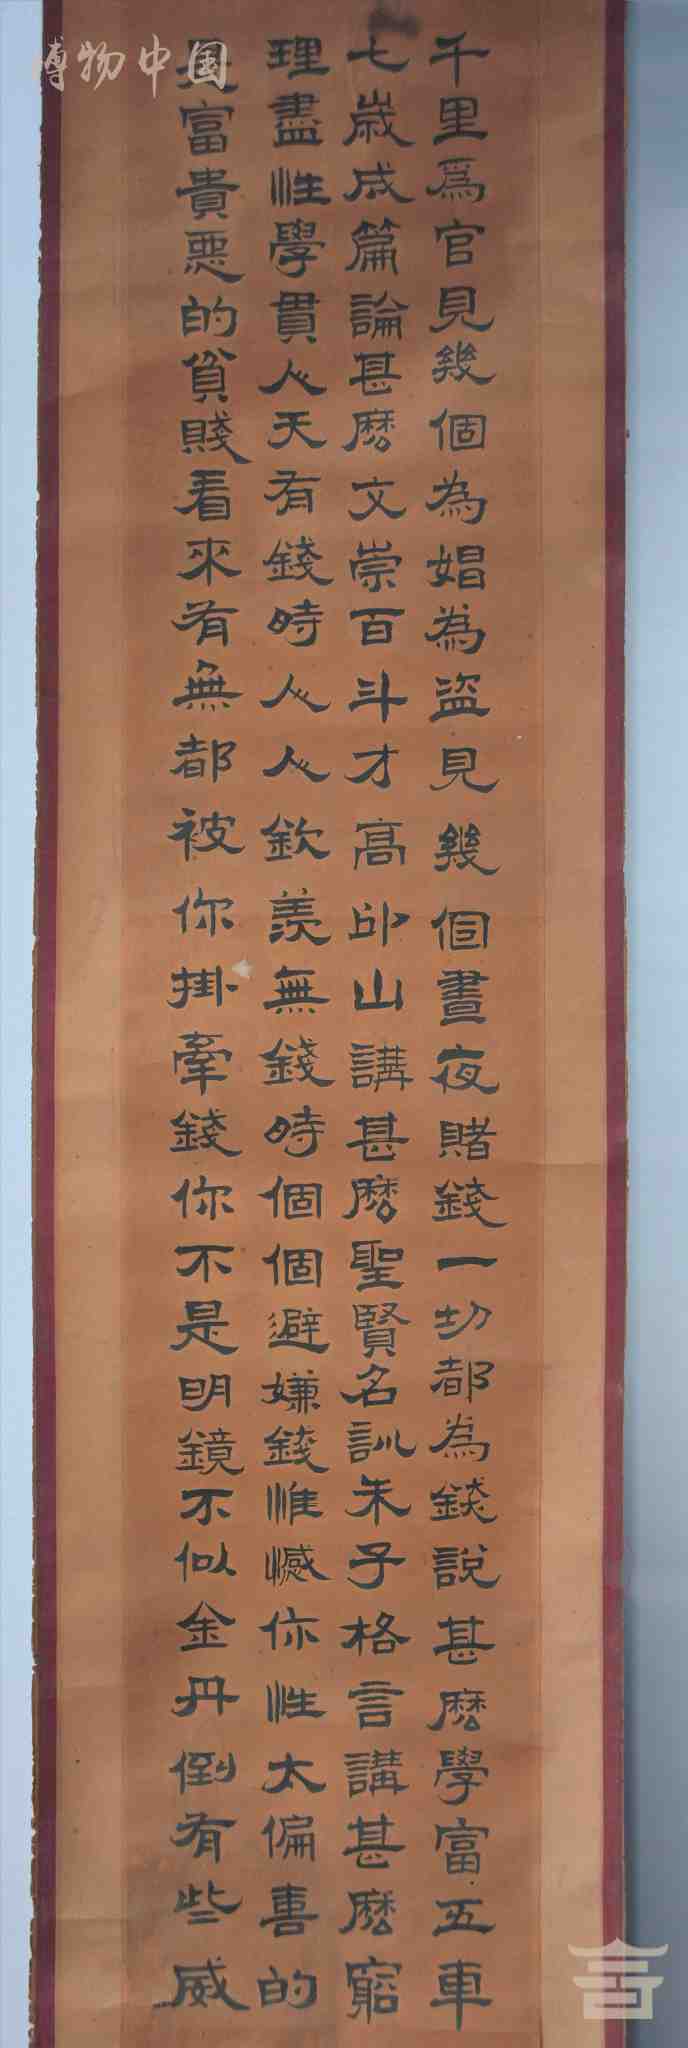 千里爲官見幾個為娼為盜見幾個晝夜賭錢一切都為錢說甚麽學富五車
七歲成篇論甚麽文崇百斗才高邱山講甚麽聖賢名訓朱子格言講甚麽窮
理盡性學貫人天有錢時人人欽羨無錢時個個避嫌錢惟憾你性太偏喜的
是富貴惡的貧賤看來有無都被你掛牽錢你不是明鏡不似金丹倒有些威
博物中国